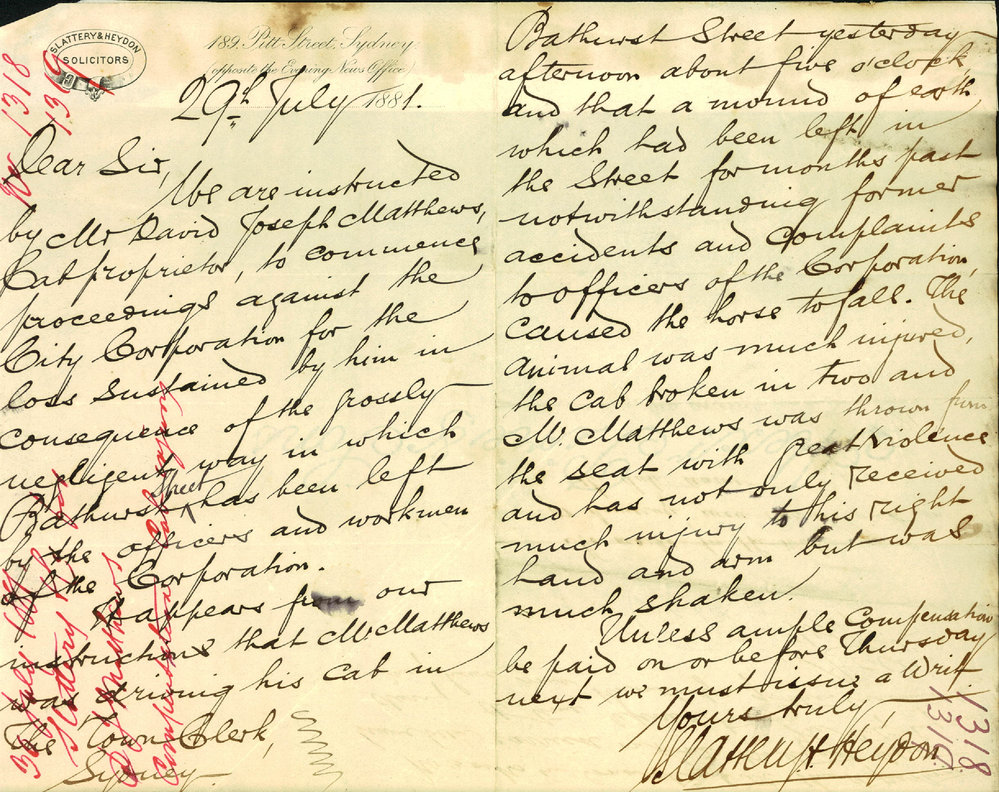 SLATTERY & HEYDON
SOLICITORS
189. Pitt Street, Sydney.
(opposite the Evening News Office)
29th July 1881.
Dear Sir,
We are instructed
by Mr David Joseph Matthews,
Cab proprietor, to commence
proceedings against the
City Corporation for the
loss sustained by him in
consequence of the grossly
negligent way in which
Bathurst Street has been left
by the officers and workmen
of the Corporation.
It appears from our
instructions that Mr Matthews
was driving his cab in
The Town Clerk,
Sydney
Bathurst Street yesterday
afternoon about five o'clock,
and that a mound of earth
which had been left in
the Street for months past
notwithstanding former
accidents and complaints
to officers of the Corporation,
caused the horse to fall. The
animal was much injured,
the cab broken in two and
Mr. Matthews was thrown from
the seat with great violence
and has not only received
much injury to his right
hand and arm but was
much shaken.
Unless ample compensation
be paid on or before Thursday
next we must issue a Writ.
Yours truly,
Slattery & Heydon
1318
1319
1318
1319
30 July 1881
Slattery & Heydon
D J Matthews
Compensation